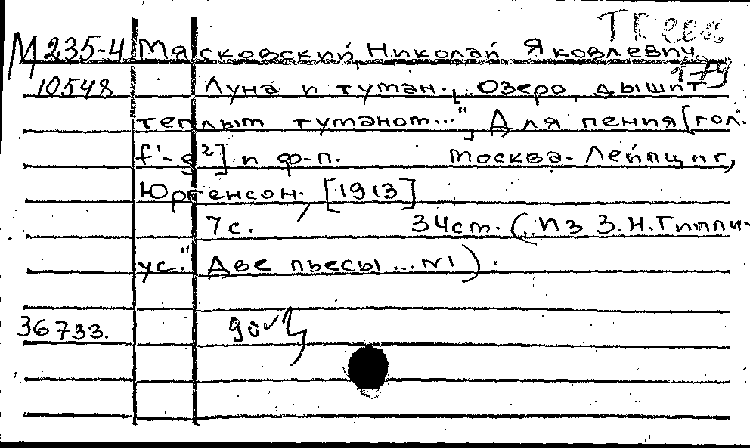 М235-4 Мясковский, Николай Яковлевич.
1-79
10548 Луна и туман. „Озеро дышит
теплым туманом...", Для пения [гол.
f¹-g²] и ф-п. Москва-Лейпциг,
Юргенсон, [1913]
7с. 34см. (Из З.Н.Гиппи-
ус." Две пьесы...№1).
36733. 90